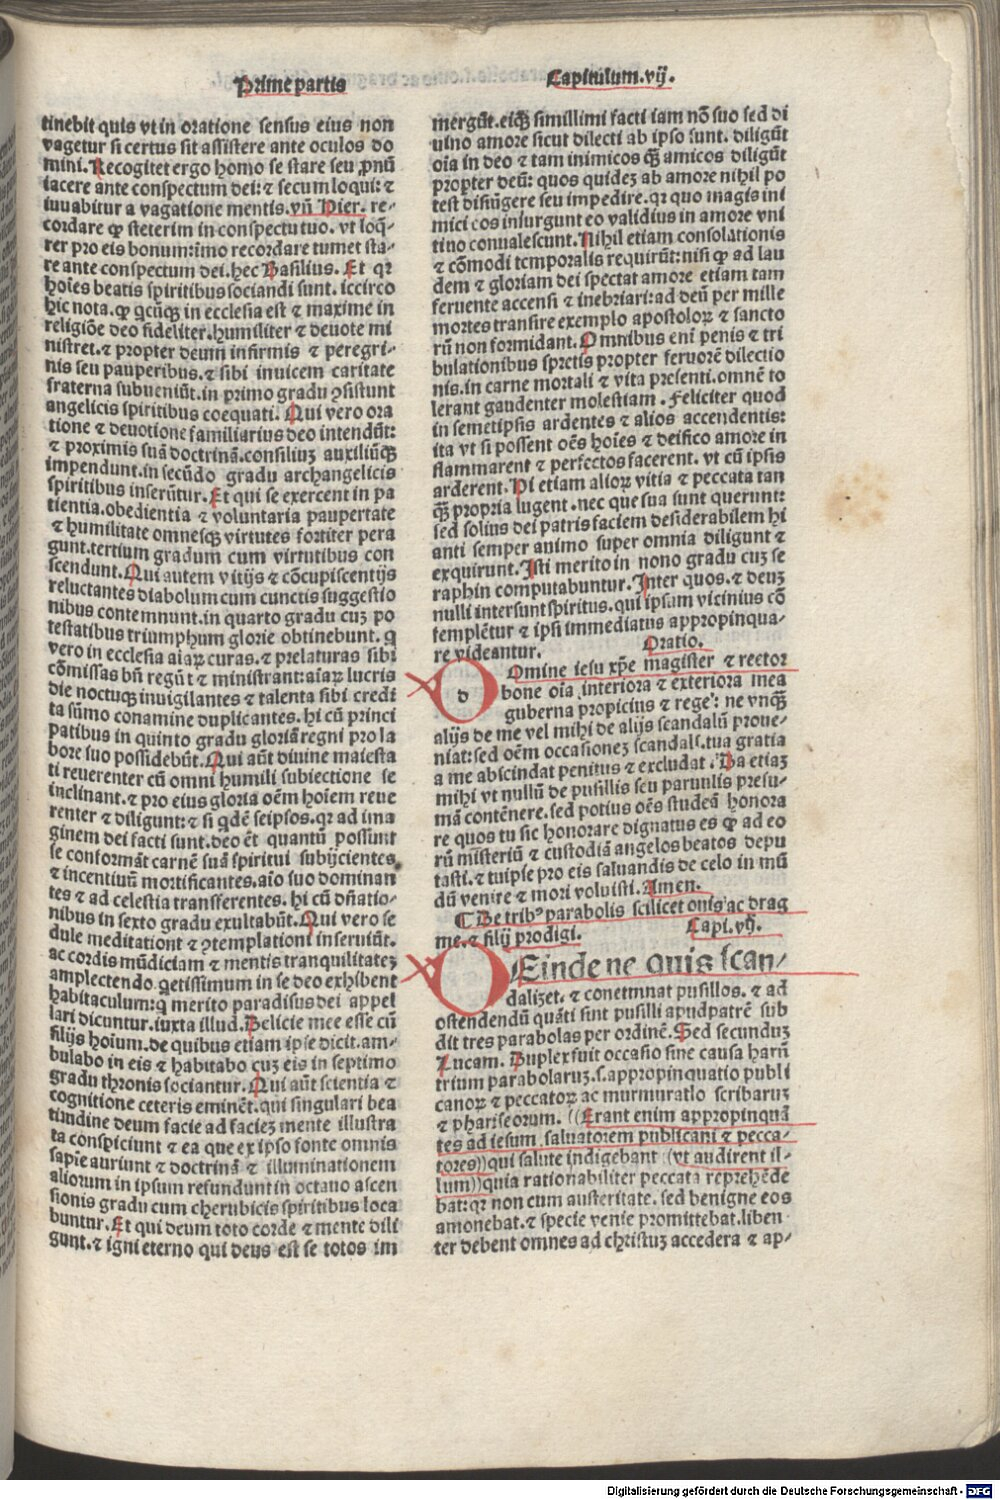 Prime partis
Capitulum.vij.
tinebit quis vt in oratione sensus eius non
vagetur si certus sit assistere ante oculos do
mini. Recogitet ergo homo se stare seu ꝓnū
iacere ante conspectum dei: ⁊ secum loqui: ⁊
iuuabitur a vagatione mentis. vn̄ Hier. re-
cordare ꝙ steterim in conspectu tuo. vt loq̄-
rer pro eis bonum: īmo recordare tumet sta-
re ante conspectum dei. hec Basilius. Et qꝛ
hoīes beatis spiritibus sociandi sunt. iccirco
hic nota. ꝙ qͨūqꝫ in ecclesia est ⁊ maxime in
religiōe deo fideliter. humiliter ⁊ deuote mi
nistret. ⁊ propter deum infirmis ⁊ peregri-
nis seu pauperibus. ⁊ sibi inuicem caritate
fraterna subueniūt. in primo gradu ꝯsistunt
angelicis spiritibus coequati. Qui vero ora
tione ⁊ deuotione familiarius deo intendūt:
⁊ proximis suā doctrinā. consiliuꝫ auxiliūqꝫ
impendunt. in secūdo gradu archangelicis
spiritibus inserūtur. Et qui se exercent in pa
tientia. obedientia ⁊ voluntaria paupertate
⁊ humilitate omnesqꝫ virtutes fortiter pera
gunt. tertium gradum cum virtutibus con
scendunt. Qui autem vitijs ⁊ cōcupiscentijs
reluctantes diabolum cum cunctis suggestio
nibus contemnunt. in quarto gradu cuꝫ po
testatibus triumphum glorie obtinebunt. q̇
vero in ecclesia aīaꝝ curas. ⁊ prelaturas sibi
cōmissas bn̄ regūt ⁊ ministrant: aīaꝝ lucris
die noctuqꝫ inuigilantes ⁊ talenta sibi credi
ta sūmo conamine duplicantes. hi cū princi
patibus in quinto gradu gloriā regni pro la
bore suo possidebūt. Qui aūt diuine maiesta
ti reuerenter cū omni humili subiectione se
inclinant. ⁊ pro eius gloria oēm hoīem reue
renter ⁊ diligunt: ⁊ si qͥdē seipsos. qꝛ ad ima
ginem dei facti sunt. deo ēt quantū possunt
se conformāt carnē suā spiritui subijcientes
⁊ incentiuū mortificantes. aīo suo dominan
tes ⁊ ad celestia transferentes. hi cū dn̄atio-
nibus in sexto gradu exultabūt. Qui vero se
dule meditationi ⁊ ꝯtemplationi inseruiūt.
ac cordis mūdiciam ⁊ mentis tranquilitateꝫ
amplectendo. qͥetissimum in se deo exhibent
habitaculum: q̇ merito paradisus dei appel
lari dicuntur. iuxta illud. Delicie mee esse cū
filijs hoīum. de quibus etiam ipse dicit. am-
bulabo in eis ⁊ habitabo cuꝫ eis in septimo
gradu thronis sociantur. Qui aūt scientia ⁊
cognitione ceteris eminēt. qui singulari bea
titudine deum facie ad facieꝫ mente illustra
ta conspiciunt ⁊ ea que ex ipso fonte omnis
sapīe auriunt ⁊ doctrinā ⁊ illuminationem
aliorum in ipsum refundunt in octauo ascen
sionis gradu cum cherubicis spiritibus loca
buntur. Et qui deum toto corde ⁊ mente dili
gunt. ⁊ igni eterno qui deus est se totos im
mergūt. eiqꝫ simillimi facti iam nō suo sed di
uino amore sicut dilecti ab ipso sunt. diligūt
oīa in deo ⁊ tam inimicos qꝫ amicos diligūt
propter deū: quos quideꝫ ab amore nihil po
test disiūgere seu impedire. qꝛ quo magis ini
mici eos insurgunt eo validius in amore vni
tiuo conualescunt. Nihil etiam consolationis
⁊ cōmodi temporalis requirūt: nisi ꝙ ad lau
dem ⁊ gloriam dei spectat amore etiam tam
feruente accensi ⁊ inebriari: ad deū per mille
mortes transire exemplo apostoloꝝ ⁊ sancto
rū non formidant. Omnibus enī penis ⁊ tri
bulationibus spretis propter feruorē dilectio
nis. in carne mortali ⁊ vita presenti. omnē to
lerant gaudenter molestiam. Feliciter quod
in semetipsis ardentes ⁊ alios accendentis:
ita vt si possent oēs hoīes ⁊ deifico amore in
flammarent ⁊ perfectos facerent. vt cū ipsis
arderent. Hi etiam alioꝝ vitia ⁊ peccata tan
qꝫ propria lugent. nec que sua sunt querunt:
sed solius dei patris faciem desiderabilem hi
anti semper animo super omnia diligunt ⁊
exquirunt. Isti merito in nono gradu cuꝫ se
raphin computabuntur. Inter quos. ⁊ deuꝫ
nulli intersunt spiritus. qui ipsum vicinius cō
templētur ⁊ ipsi immediatus appropinqua-
re videantur.
Oratio.
d Omine iesu xp̄e magister ⁊ rector
bone oīa interiora ⁊ exteriora mea
guberna propicius ⁊ rege: ne vnqꝫ
alijs de me vel mihi de alijs scandalū proue-
niat: sed oēm occasioneꝫ scandali. tua gratia
a me abscindat penitus ⁊ excludat. Da etiaꝫ
mihi vt nullū de pusillis seu paruulis presu-
mā contēnere. sed potius oēs studeā honora
re quos tu sic honorare dignatus es ꝙ ad eo
rū misteriū ⁊ custodiā angelos beatos depu
tasti. ⁊ tuipse pro eis saluandis de celo in mū
dū venire ⁊ mori voluisti. Amen.
¶ De tribꝰ parabolis scilicet ouis ac drag
me. ⁊ filij prodigi.
Capi. vij.
DEinde ne quis scan-
dalizet. ⁊ conetmnat pusillos. ⁊ ad
ostendendū quāti sint pusilli apud patrē sub
dit tres parabolas per ordinē. Sed secunduꝫ
Lucam. Duplex fuit occasio sine causa harū
trium parabolaruꝫ. s. appropinquatio publi
canoꝝ ⁊ peccatoꝝ ac murmuratio scribaruꝫ
⁊ phariseorum. ((Erant enim appropinquā
tes ad iesum saluatorem publicani ⁊ pecca-
tores)) qui salute indigebant ((vt audirent il-
lum)) quia rationabiliter peccata reprehēde
bat: qꝛ non cum austeritate. sed benigne eos
amonebat. ⁊ specie venie promittebat. liben
ter debent omnes ad christuꝫ accedera ⁊ ap-
Digitalisierung gefördert durch die Deutsche Forschungsgemeinschaft - DFG